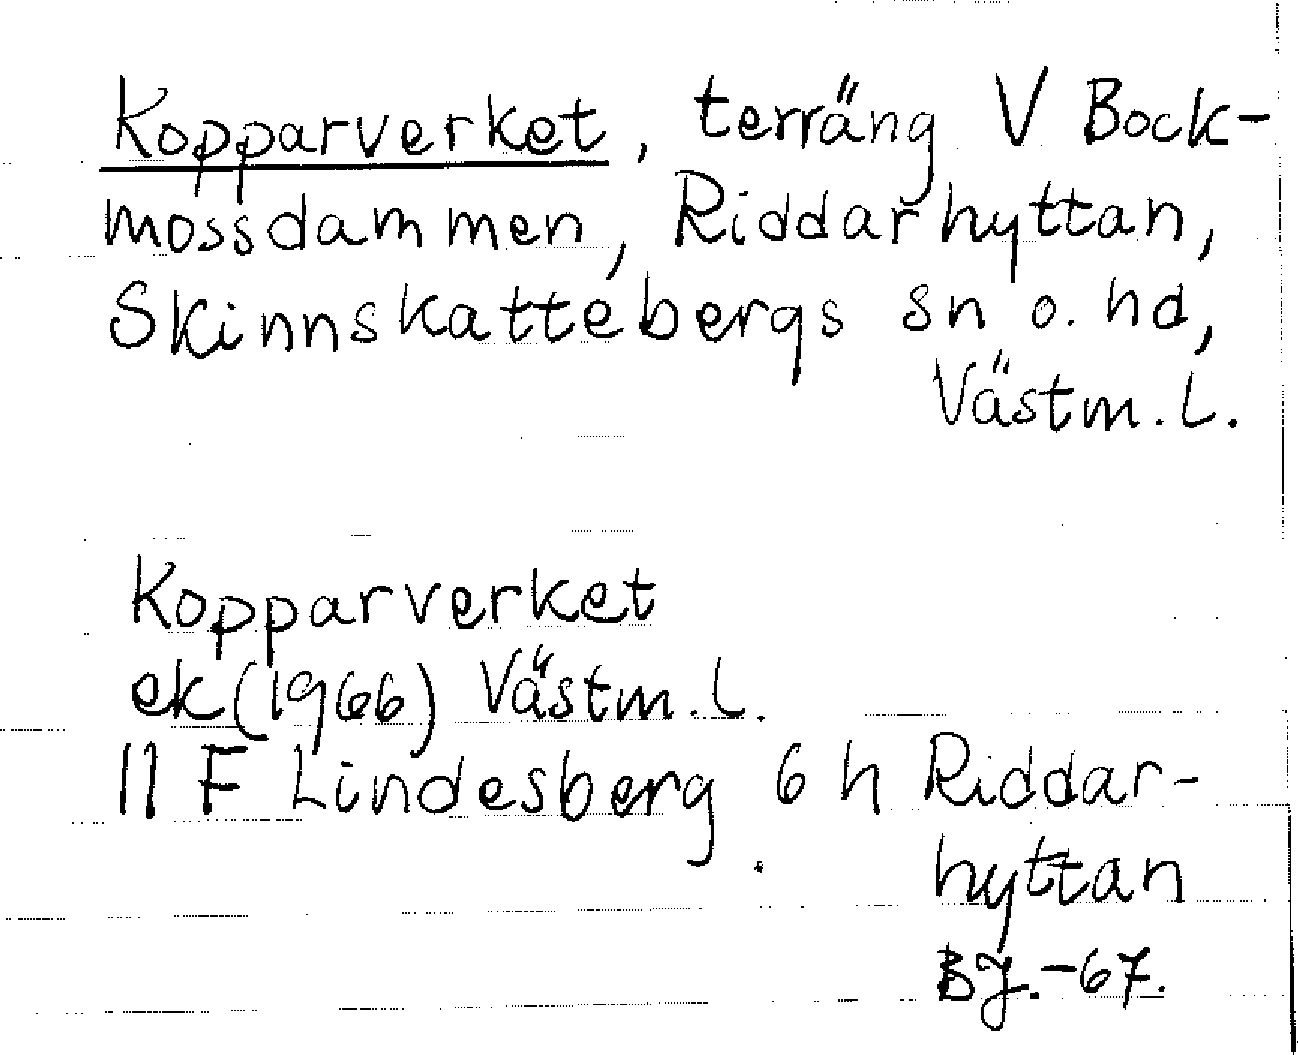 Kopparverket, terräng V Bock-
mossdammen, Riddarhyttan,
Skinnskattebergs sn o. hd,
Västm. L.
Kopparverket
ek (1966) Västm. L.
11 F Lindesberg 6 h Riddar-
hyttan
BJ. -67.